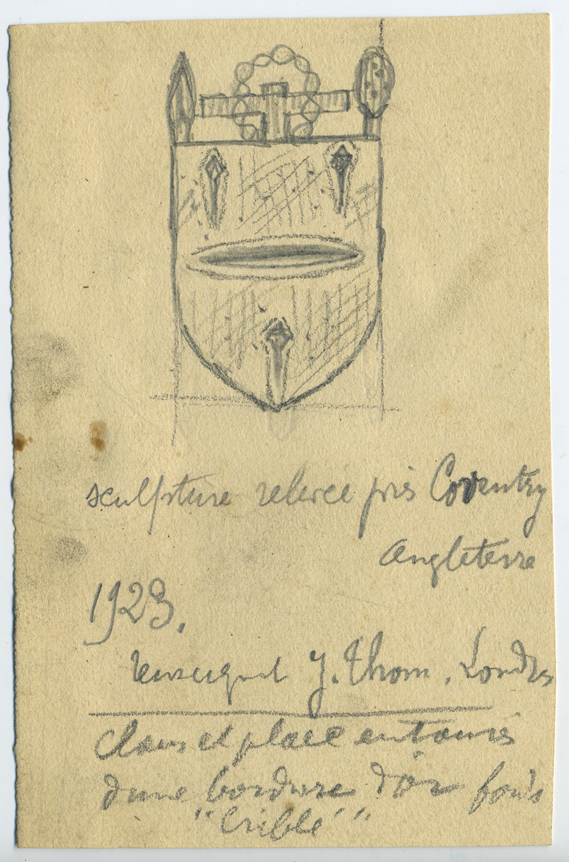 sculpture relevée près Coventry
Angleterre
1923.
renseignt J. Thom, Londres
Clous et place entourés
d'une bordure d'or fonds
"criblé"